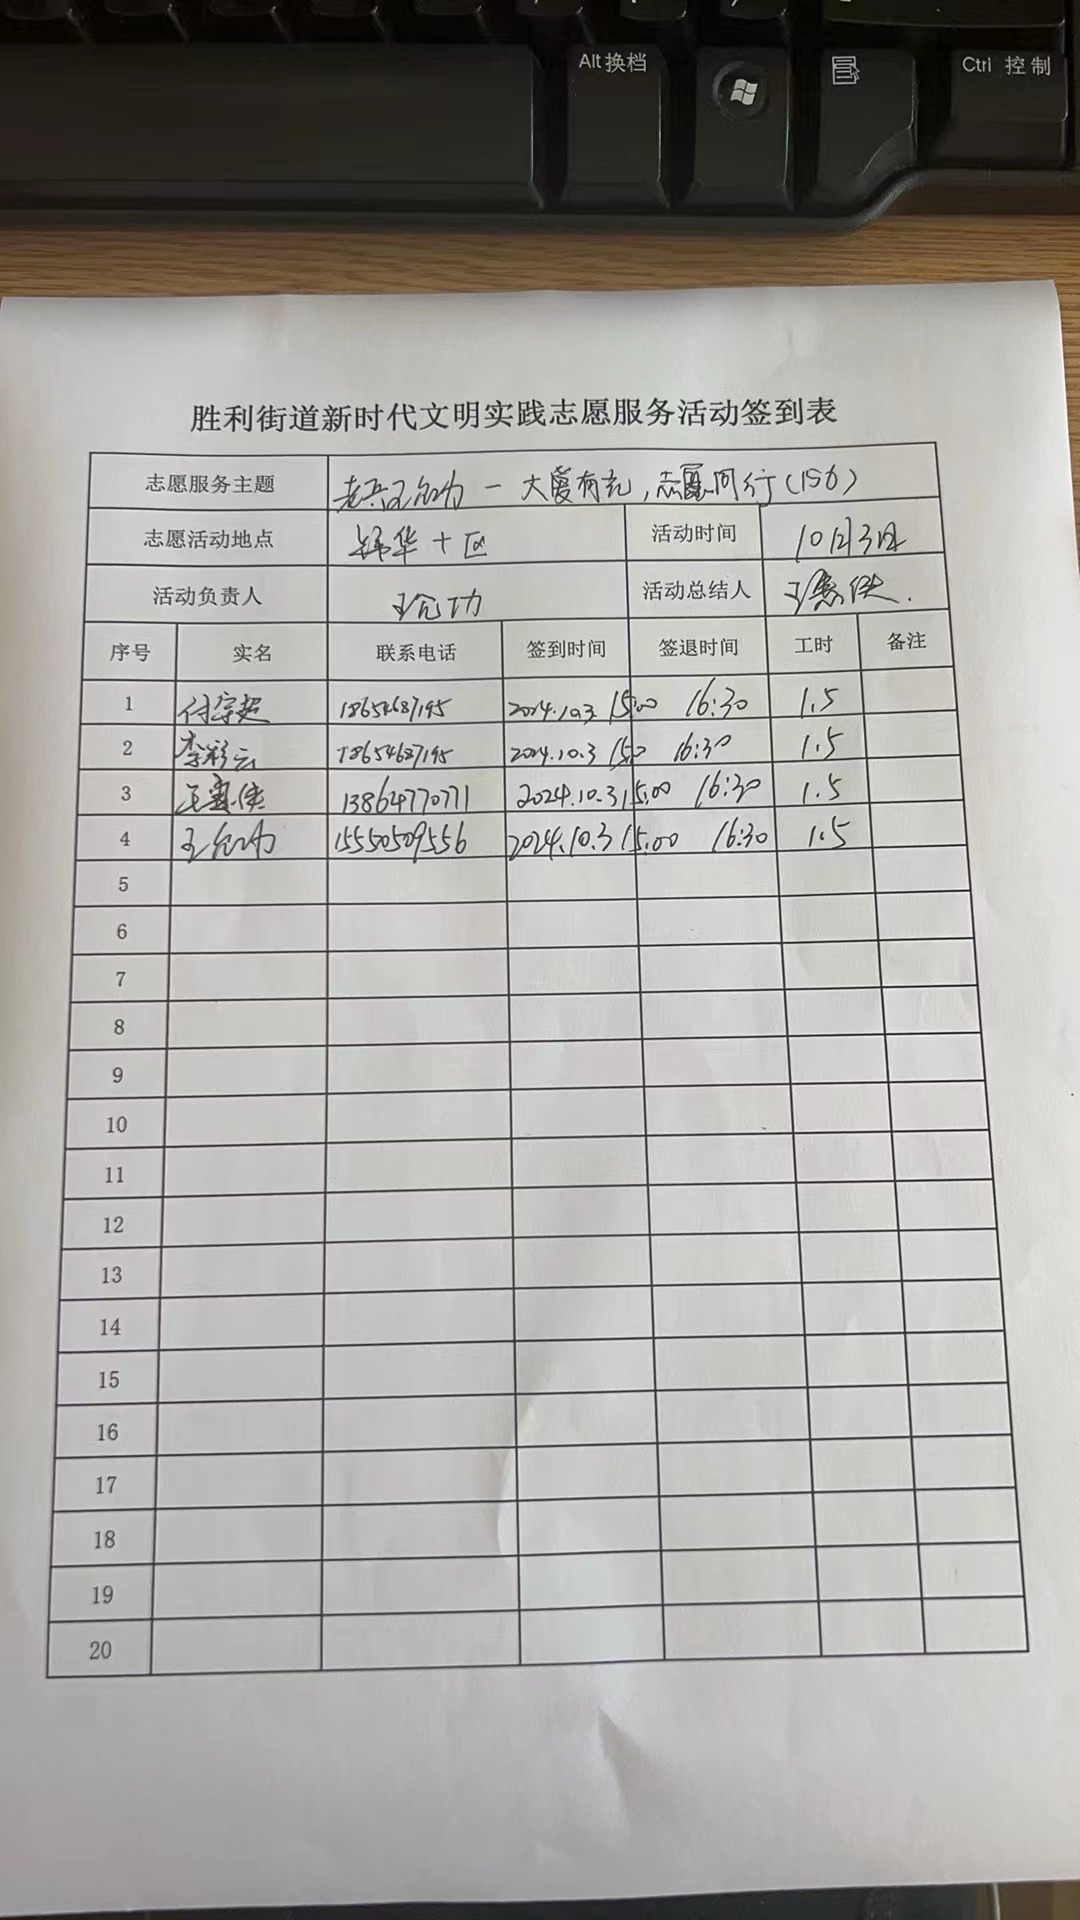 Alt 换档
Ctrl 控制
胜利街道新时代文明实践志愿服务活动签到表
志愿服务主题 老兵王允功一大爱有光,志愿同行(156)
志愿活动地点 锦华十区 活动时间 10月3日
活动负责人 王允功 活动总结人 王惠侠.
序号 实名 联系电话 签到时间 签退时间 工时 备注
1 付宗超 18654687195 2024.10.3 15:00 16:30 1.5
2 李彩云 18654687195 2024.10.3 15:0 16:30 1.5
3 王惠侠 13864770771 2024.10.3 15:00 16:30 1.5
4 王允功 15550509556 2024.10.3 15:00 16:30 1.5
5
6
7
8
9
10
11
12
13
14
15
16
17
18
19
20